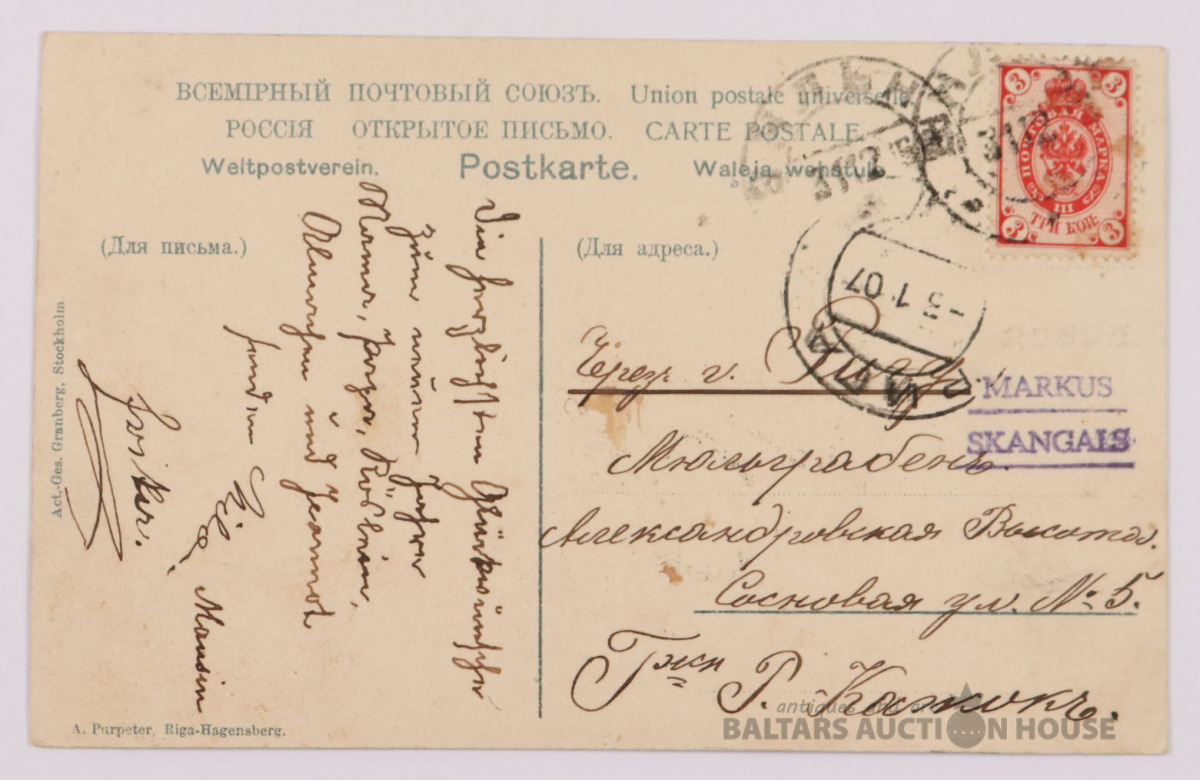 ВСЕМІРНЫЙ ПОЧТОВЫЙ СОЮЗЪ. Union postale universelle
РОССІЯ ОТКРЫТОЕ ПИСЬМО. CARTE POSTALE.
Weltpostverein. Postkarte. Waleja wehstule.
3 3
ПОЧТОВАЯ МАРКА
III
3 3
ТРИ КОП.
3112
3112
(Для письма.)
(Для адреса.)
Die herzlichsten Glückwünsche
zum neuen Jahre
Mama, Papa,
und Jeannot
senden
-3 1 07
РИГА
Черезъ г. Ригу
MARKUS
SKANGALS
Мюльграбенъ.
Александровская Высота.
Сосновая ул. № 5.
Гжи Р.
Act.-Ges. Granberg, Stockholm
A. Purpeter, Riga-Hagensberg.
BALTARS AUCTION HOUSE